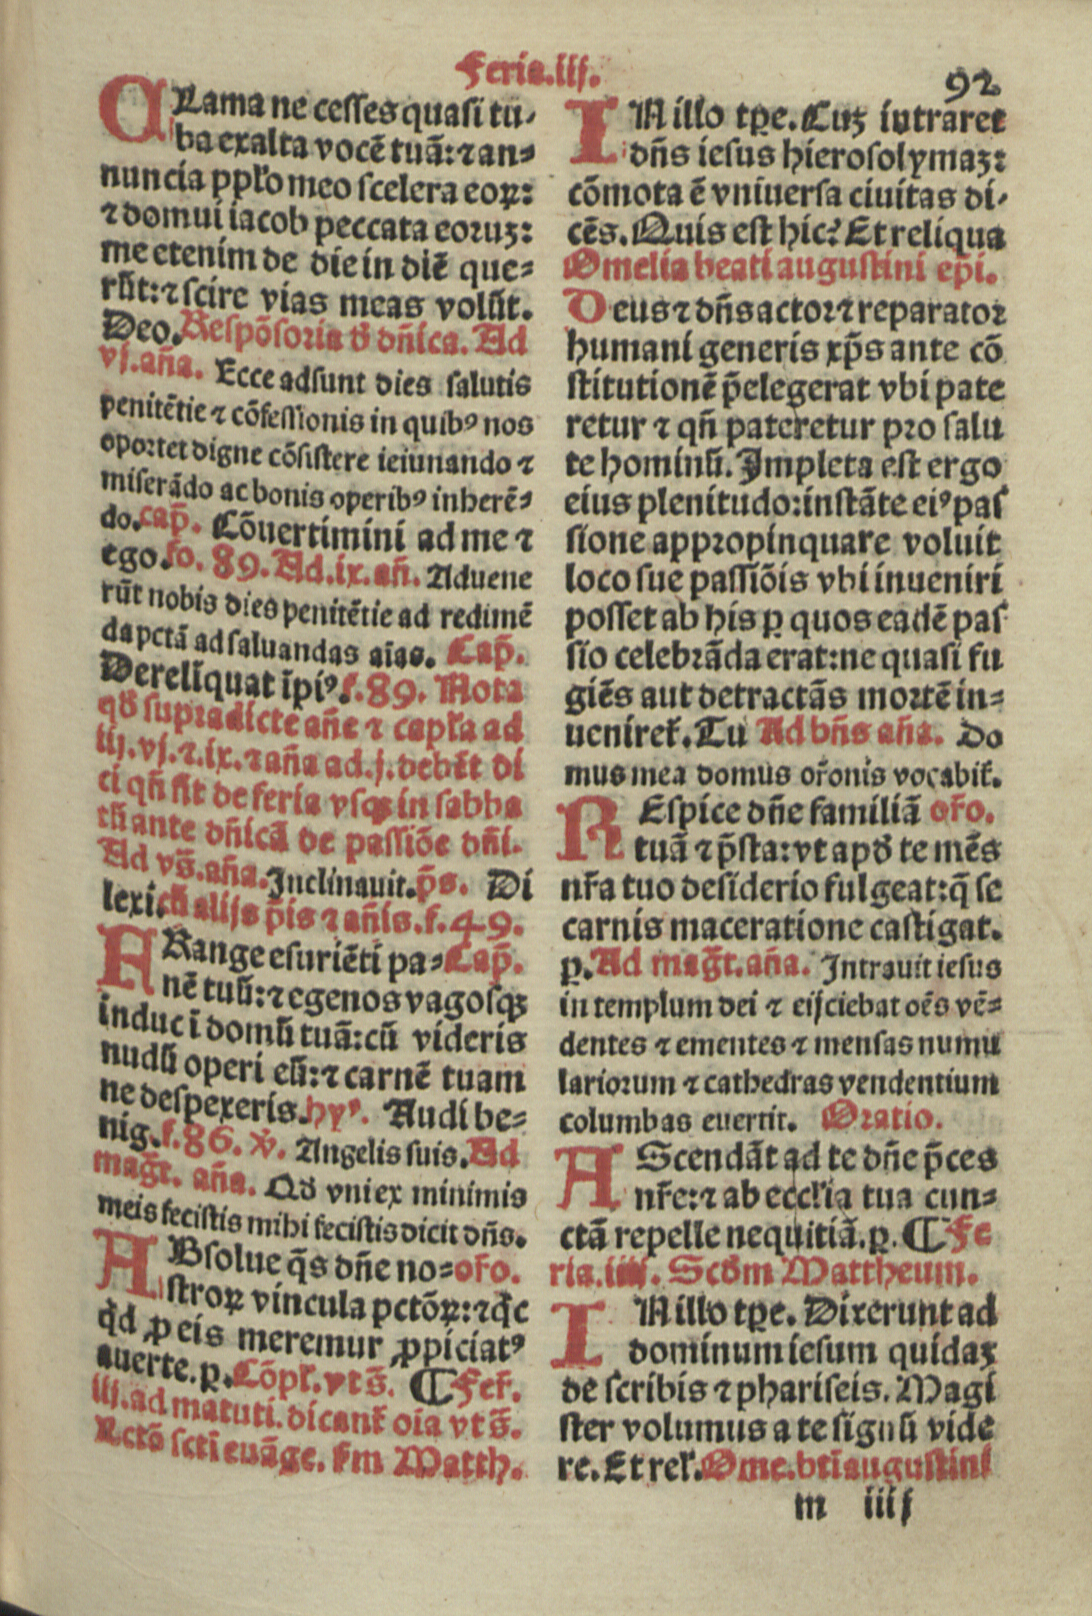 Feria.iij.
92
CLama ne cesses quasi tu-
ba exalta vocē tuā: ⁊ an-
nuncia ppl'o meo scelera eoꝝ:
⁊ domui iacob peccata eoruꝫ:
me etenim de die in diē que-
rūt: ⁊ scire vias meas volūt.
Deo. Respōsoria d' dn̄ica. Ad
vj. an̄a. Ecce adsunt dies salutis
penitētie ⁊ cōfessionis in quibꝰ nos
oportet digne cōsistere ieiunando ⁊
miserādo ac bonis operibꝰ inherē-
do. cap̄. Cōuertimini ad me ⁊
ego. fo. 89. Ad.ix.an̄. Aduene
rūt nobis dies penitētie ad redimē
da pctā ad saluandas aīas. Cap̄.
Derelīquat īpiꝰ. f.89. Nota
qd' supradicte an̄e ⁊ capl'a ad
iij.vj.⁊.ix.⁊ an̄a ad.j. debēt di
ci qn̄ fit de feria vsqꝫ in sabba
tū ante dn̄icā de passiōe dn̄i.
Ad vs̄. an̄a. Inclinauit. p̄s. Di
lexi. cū alijs p̄is ⁊ an̄is. f.49.
FRange esuriēti pa- Cap̄.
nē tuū: ⁊ egenos vagosqꝫ
induc ī domū tuā: cū videris
nudū operi eū: ⁊ carnē tuam
ne despexeris. hyꝰ. Audi be-
nig. f.86. ꝟ. Angelis suis. Ad
magr̄. an̄a. Qd' vni ex minimis
meis fecistis mihi fecistis dicit dn̄s.
ABsolue q̄s dn̄e no- or̄o.
stroꝝ vincula pctōꝝ: ⁊ qͥc
qͥd ꝓ eis meremur ꝓpiciatꝰ
auerte. ꝑ. Cōpl'. vt s̄. ¶ Fer̄.
iij. ad matuti. dicant' oīa vt s̄.
Lctō scti euāge. scd'm Matth.
IN illo tꝑe. Cuꝫ intraret
dn̄s iesus hierosolymaꝫ:
cōmota ē vniuersa ciuitas di-
cēs. Quis est hic? Et reliqua
Omelia beati augustini ep̄i.
Deus ⁊ dn̄s actor ⁊ reparator
humani generis xp̄s ante cō
stitutionē p̄elegerat vbi pate
retur ⁊ qn̄ pateretur pro salu
te hominū. Impleta est ergo
eius plenitudo: instāte eiꝰ pas
sione appropinquare voluit
loco sue passiōis vbi inueniri
posset ab his ꝑ quos eadē pas
sio celebrāda erat: ne quasi fu
giēs aut detractās mortē in-
ueniret'. Tu Ad bn̄s an̄a. Do
mus mea domus or̄onis vocabit'.
REspice dn̄e familiā or̄o.
tuā ⁊ p̄sta: vt apd' te mēs
nr̄a tuo desiderio fulgeat: q̄ se
carnis maceratione castigat.
ꝑ. Ad magr̄. an̄a. Intrauit iesus
in templum dei ⁊ eijciebat oēs vē-
dentes ⁊ ementes ⁊ mensas numu
lariorum ⁊ cathedras vendentium
columbas euertit. Oratio.
AScendāt ad te dn̄e p̄ces
nr̄e: ⁊ ab eccl'ia tua cun-
ctā repelle nequitiā. ꝑ. ¶ Fe
ria.iiij. Scd'm Mattheum.
IN illo tꝑe. Dixerunt ad
dominum iesum quidaꝫ
de scribis ⁊ phariseis. Magi
ster volumus a te signū vide
re. Et rel'. Ome. bti augustini
m iiij